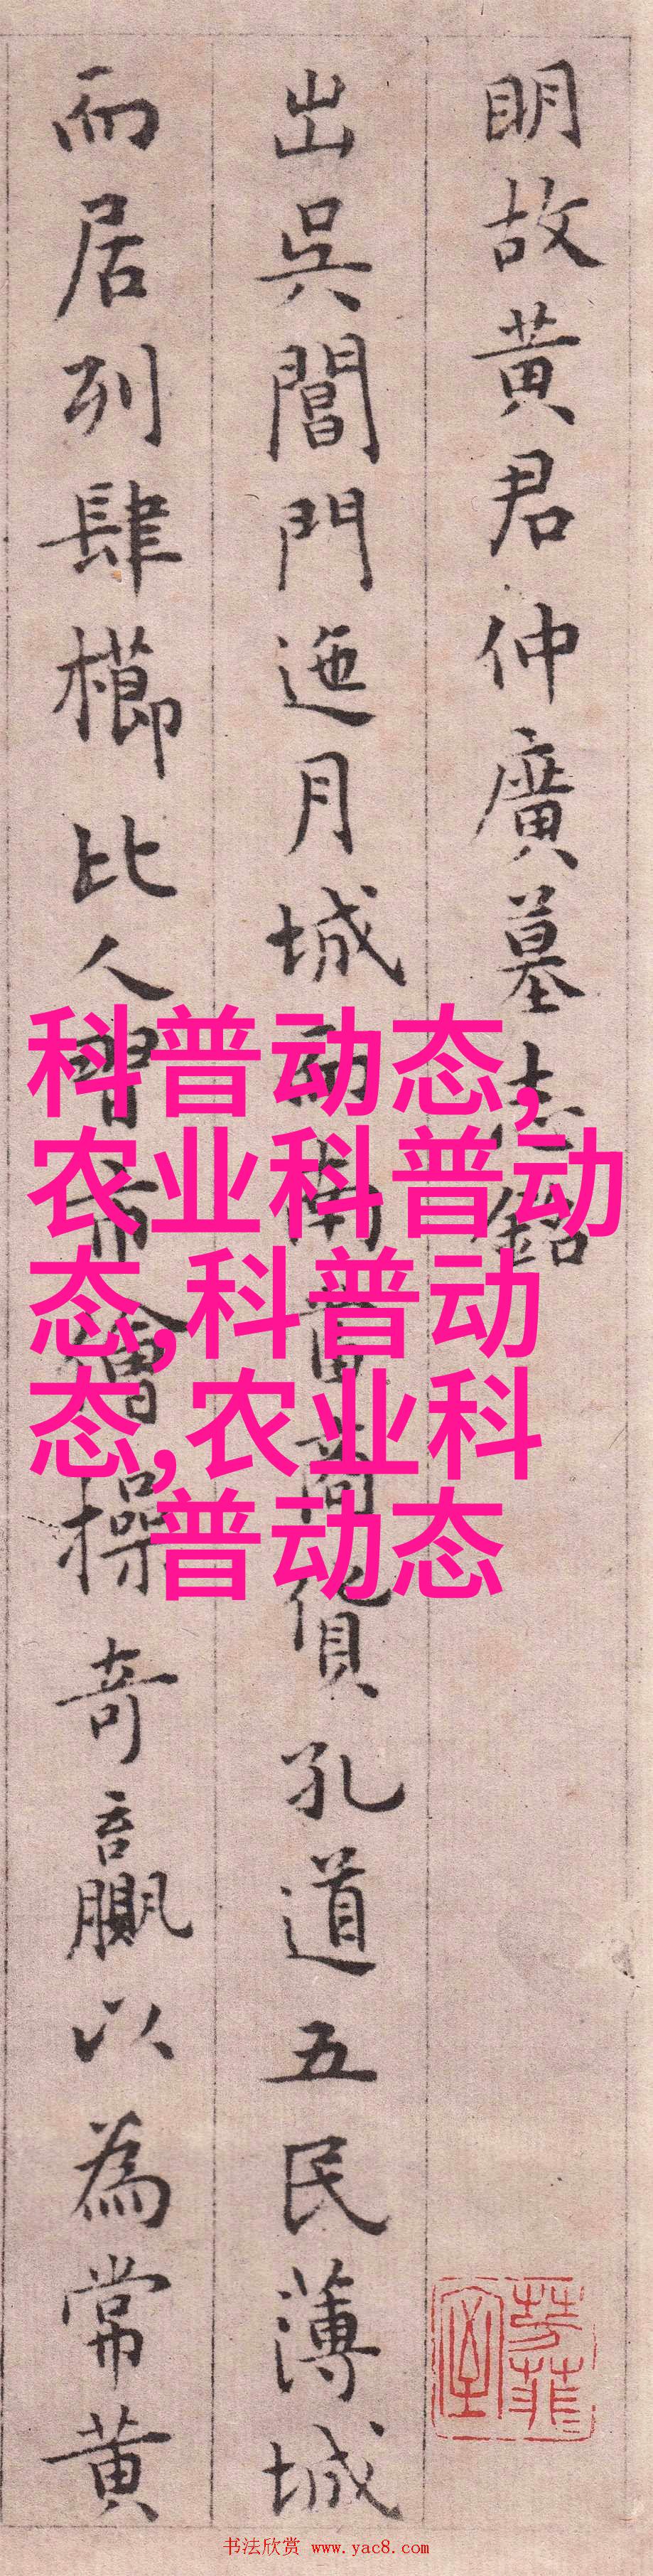 明故黄君仲廣墓志銘
出吳閶門迤月城而南當商貨孔道五民薄城
而居列肆櫛比人習市儈操奇贏以為常黄
科普动态,
农业科普动
态,科普动
态,农业科
普动态
书法欣赏 www.yac8.com